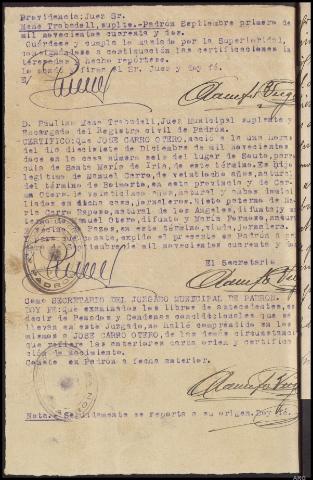 Providencia; Juez Sr.
Mene Trabadell, suplte.- Padrón Septiembre primero de
mil novecientos cuarenta y dos.
Guárdese y cumpla lo mandado por la Superioridad,
a continuación las certificaciones in
teresadas y hecho repórtese.
Lo mandó y firma el Sr. Juez y doy fé.
D. Paulino Mene Trabadell, Juez Municipal suplente y
Encargado del Registro civil de Padrón.
CERTIFICO: que JOSE CARRO OTERO, nació a una hora
del día diecisiete de Diciembre de mil novecientos
doce en la casa número seis del lugar de Souto, parro
quia de Santa María de Iria, de este término. Es hijo
legítimo de Manuel Carro, de veintiocho años, natural
del término de Boimorto, en esta provincia y de Carme
Otero, de veinticinco años, natural y ambos domici
liados en dicha casa, jornaleros. Nieto paterno de
Carro Raposo, natural de los Angeles, difunta; y ma
terno de Manuel Otero, difunto y María Ferroso, natural
y vecina de Pazos, en este término, viuda, jornalera.
Y para que conste, expido el presente en Padrón a
Septiembre de mil novecientos cuarenta y dos
El Secretario
Como SECRETARIO DEL JUZGADO MUNICIPAL DE PADRON.
DOY FE: que examinados los libros de antecedentes, es
decir de Penados y Condenas condicionales que se
llevan en este Juzgado, no halló comprendido en los
mismos a JOSE CARRO OTERO, de las demás circunstancias
que refiere las anteriores carta orden y certifica-
ción de nacimiento.
Conste en Padrón a fecha anterior.
Nota.- Seguidamente se reporta a su origen. Doy fé.